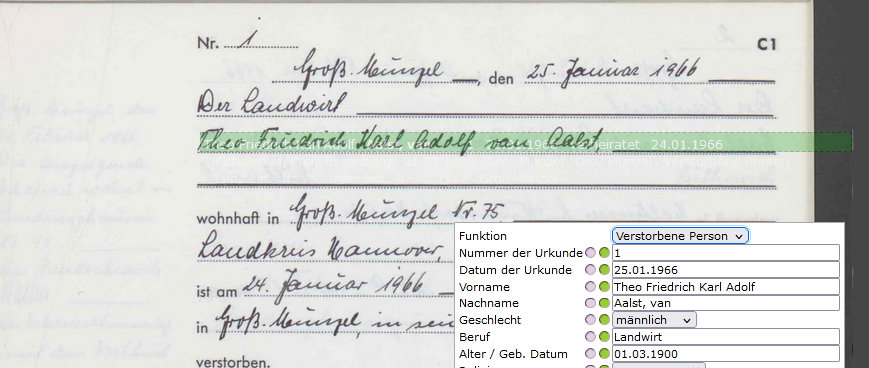 Nr. 1 C1
Groß Munzel, den 25. Januar 1966
Der Landwirt
Theo Friedrich Karl Adolf van Aalst,
verheiratet 24.01.1966
wohnhaft in Groß-Munzel Nr. 75
Landkreis Hannover,
ist am 24. Januar 1966
in Groß-Munzel, in sein
verstorben.
Funktion Verstorbene Person
Nummer der Urkunde 1
Datum der Urkunde 25.01.1966
Vorname Theo Friedrich Karl Adolf
Nachname Aalst, van
Geschlecht männlich
Beruf Landwirt
Alter / Geb. Datum 01.03.1900